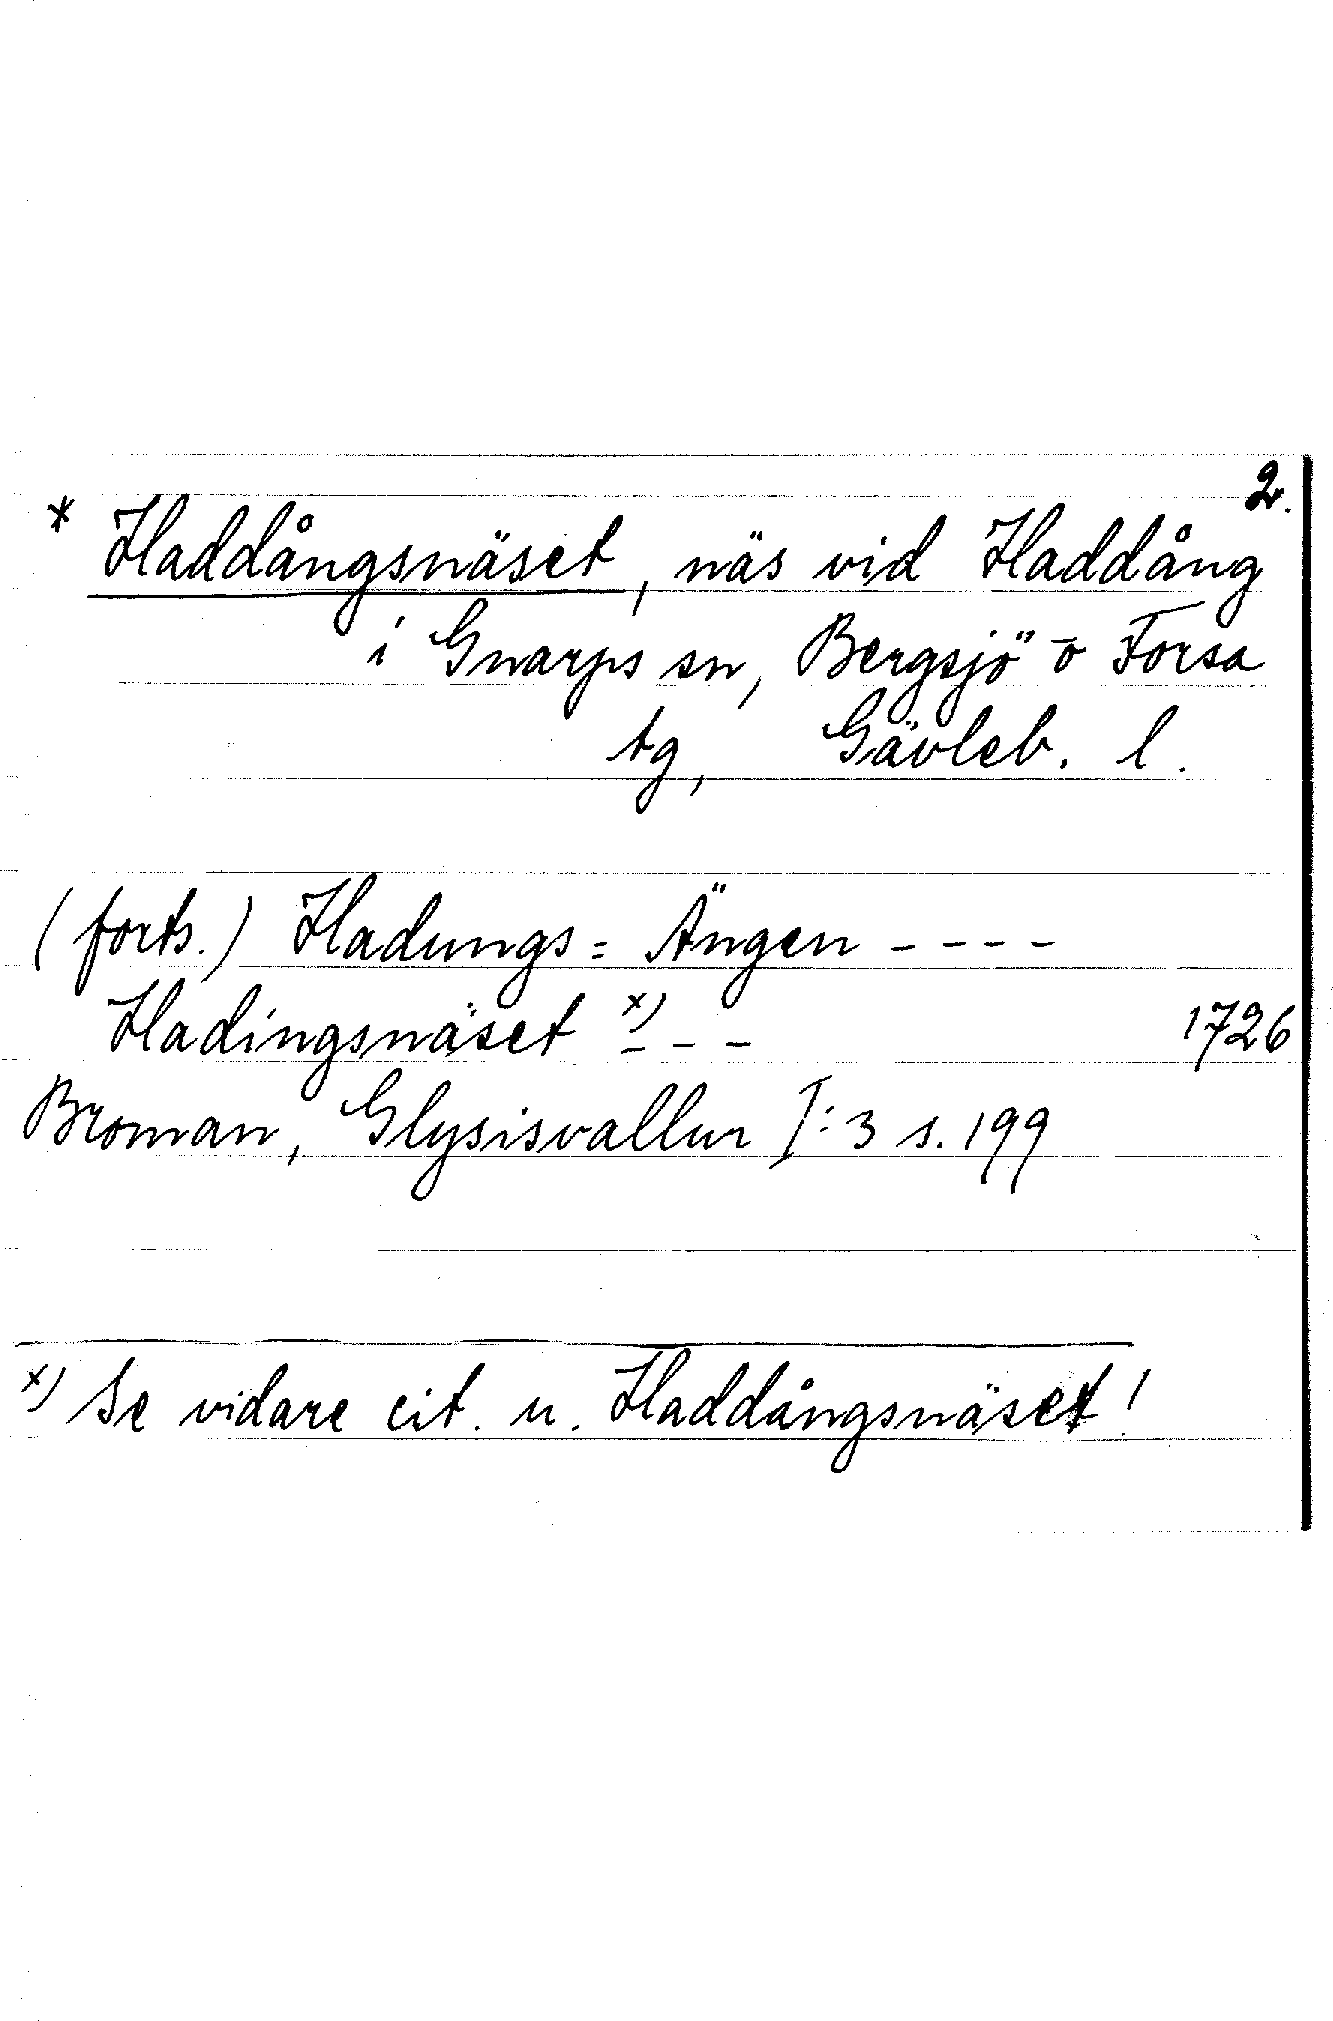 2.
* Haddångsnäset, näs vid Haddång
i Gnarps sn, Bergsjö o Forsa
tg, Gävleb. l.
(forts.) Hadungs= Ängen - - - -
Hadingsnäset x) - - - 1726
Broman, Glysisvallur I:3 s. 199
x) Se vidare cit. u. Haddångsnäset!